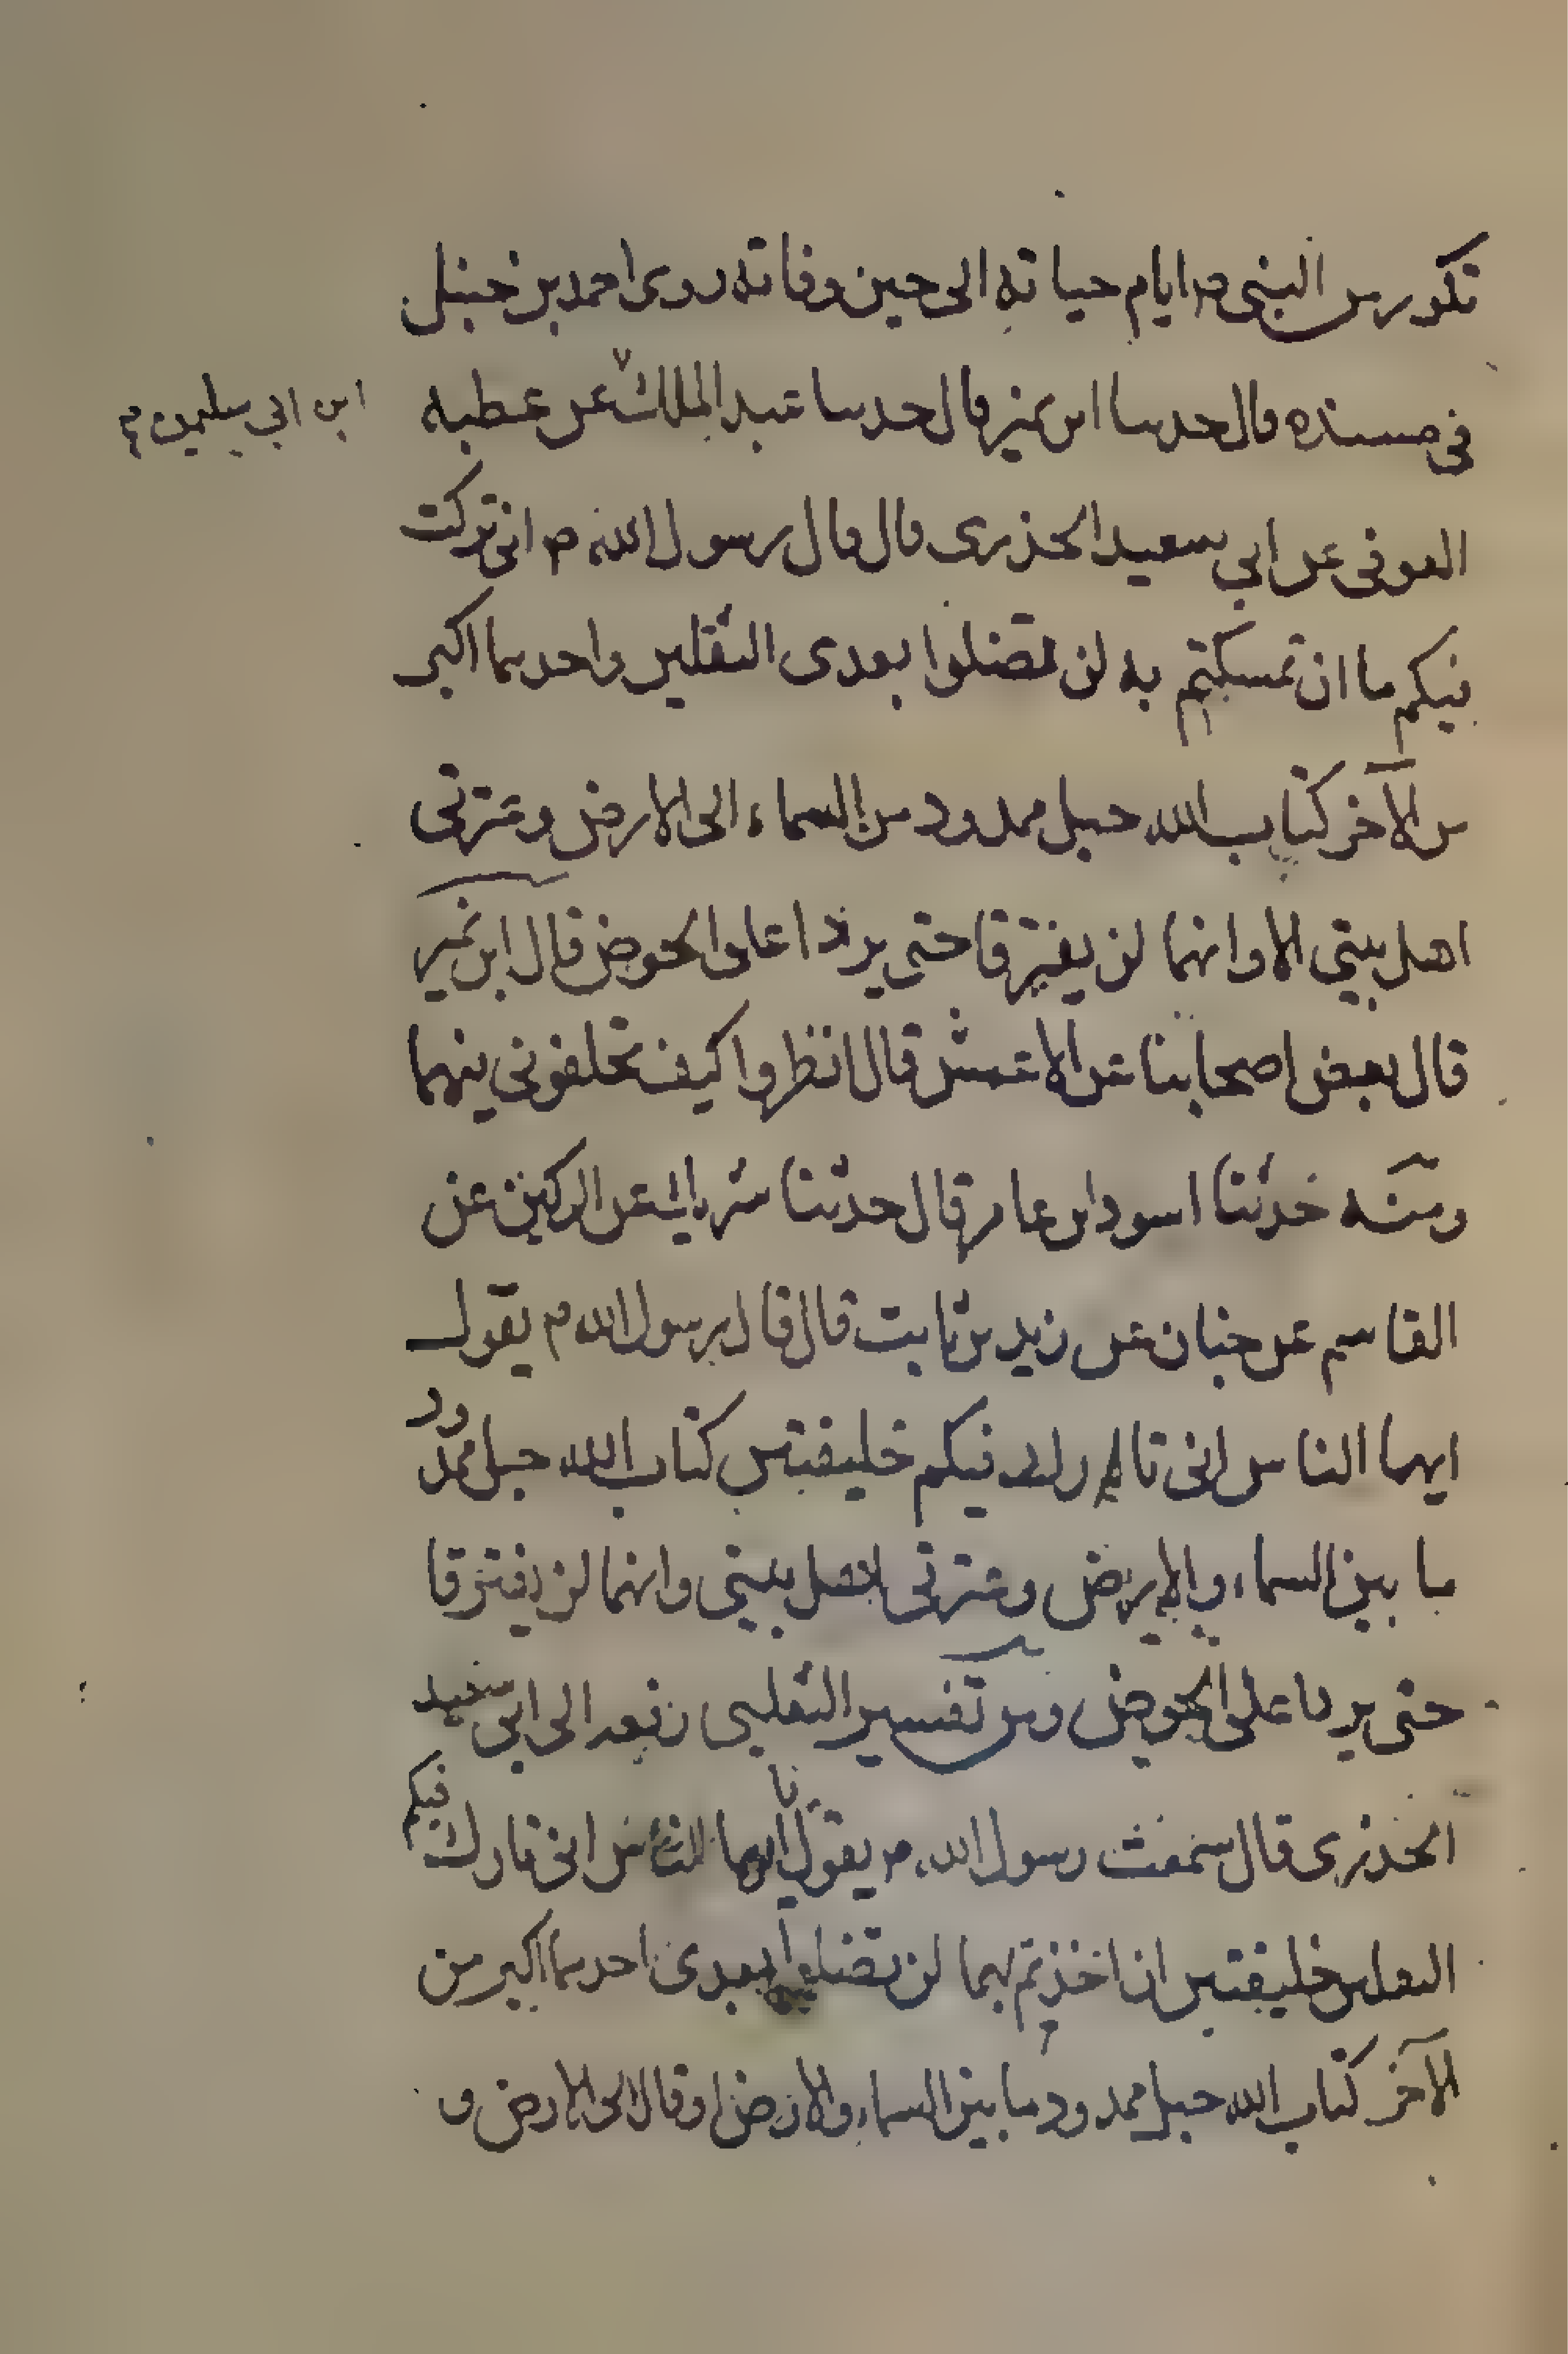 تكورس النبى ص ايام حياته الى حين وفاته روى احمد بن حنبل
فى مسنده قال حدثنا ابن نمير قال حدثنا عبد الملك عن عطيه
ابن ابي سليمن م
العوفى عن ابي سعيد الخدرى قال قال رسول الله ص انى تركت
فيكم ما ان تمسكتم به لن تضلوا بعدى الثقلين واحدهما اكبر
من الآخر كتاب الله حبل ممدود من السماء الى الارض وعترتى
اهل بيتي الا وانهما لن يفترقا حتى يردا على الحوض قال ابن نمير
قال بعض اصحابنا عن الاعمش قال انظروا كيف تخلفونى فيهما
ومنه حدثنا اسود ابن عامر قال حدثنا شريك عن الركين عن
القاسم عن حنان عن زيد بن ثابت قال قال رسول الله م يقول
ايها الناس انى تارك فيكم خليفتين كتاب الله حبل ممدود
ما بين السماء والارض وعترتى اهل بيتي وانهما لن يفترقا
حتى يردا على الحوض ومن تفسير الثعلبى رفعه الى ابي سعيد
الخدرى قال سمعت رسول الله ص يقول ايها الناس انى تارك فيكم
الثقلين خليفتين ان اخذتم بهما لن تضلوا بعدى احدهما اكبر من
الآخر كتاب الله حبل ممدود ما بين السماء والارض او قال الى الارض و